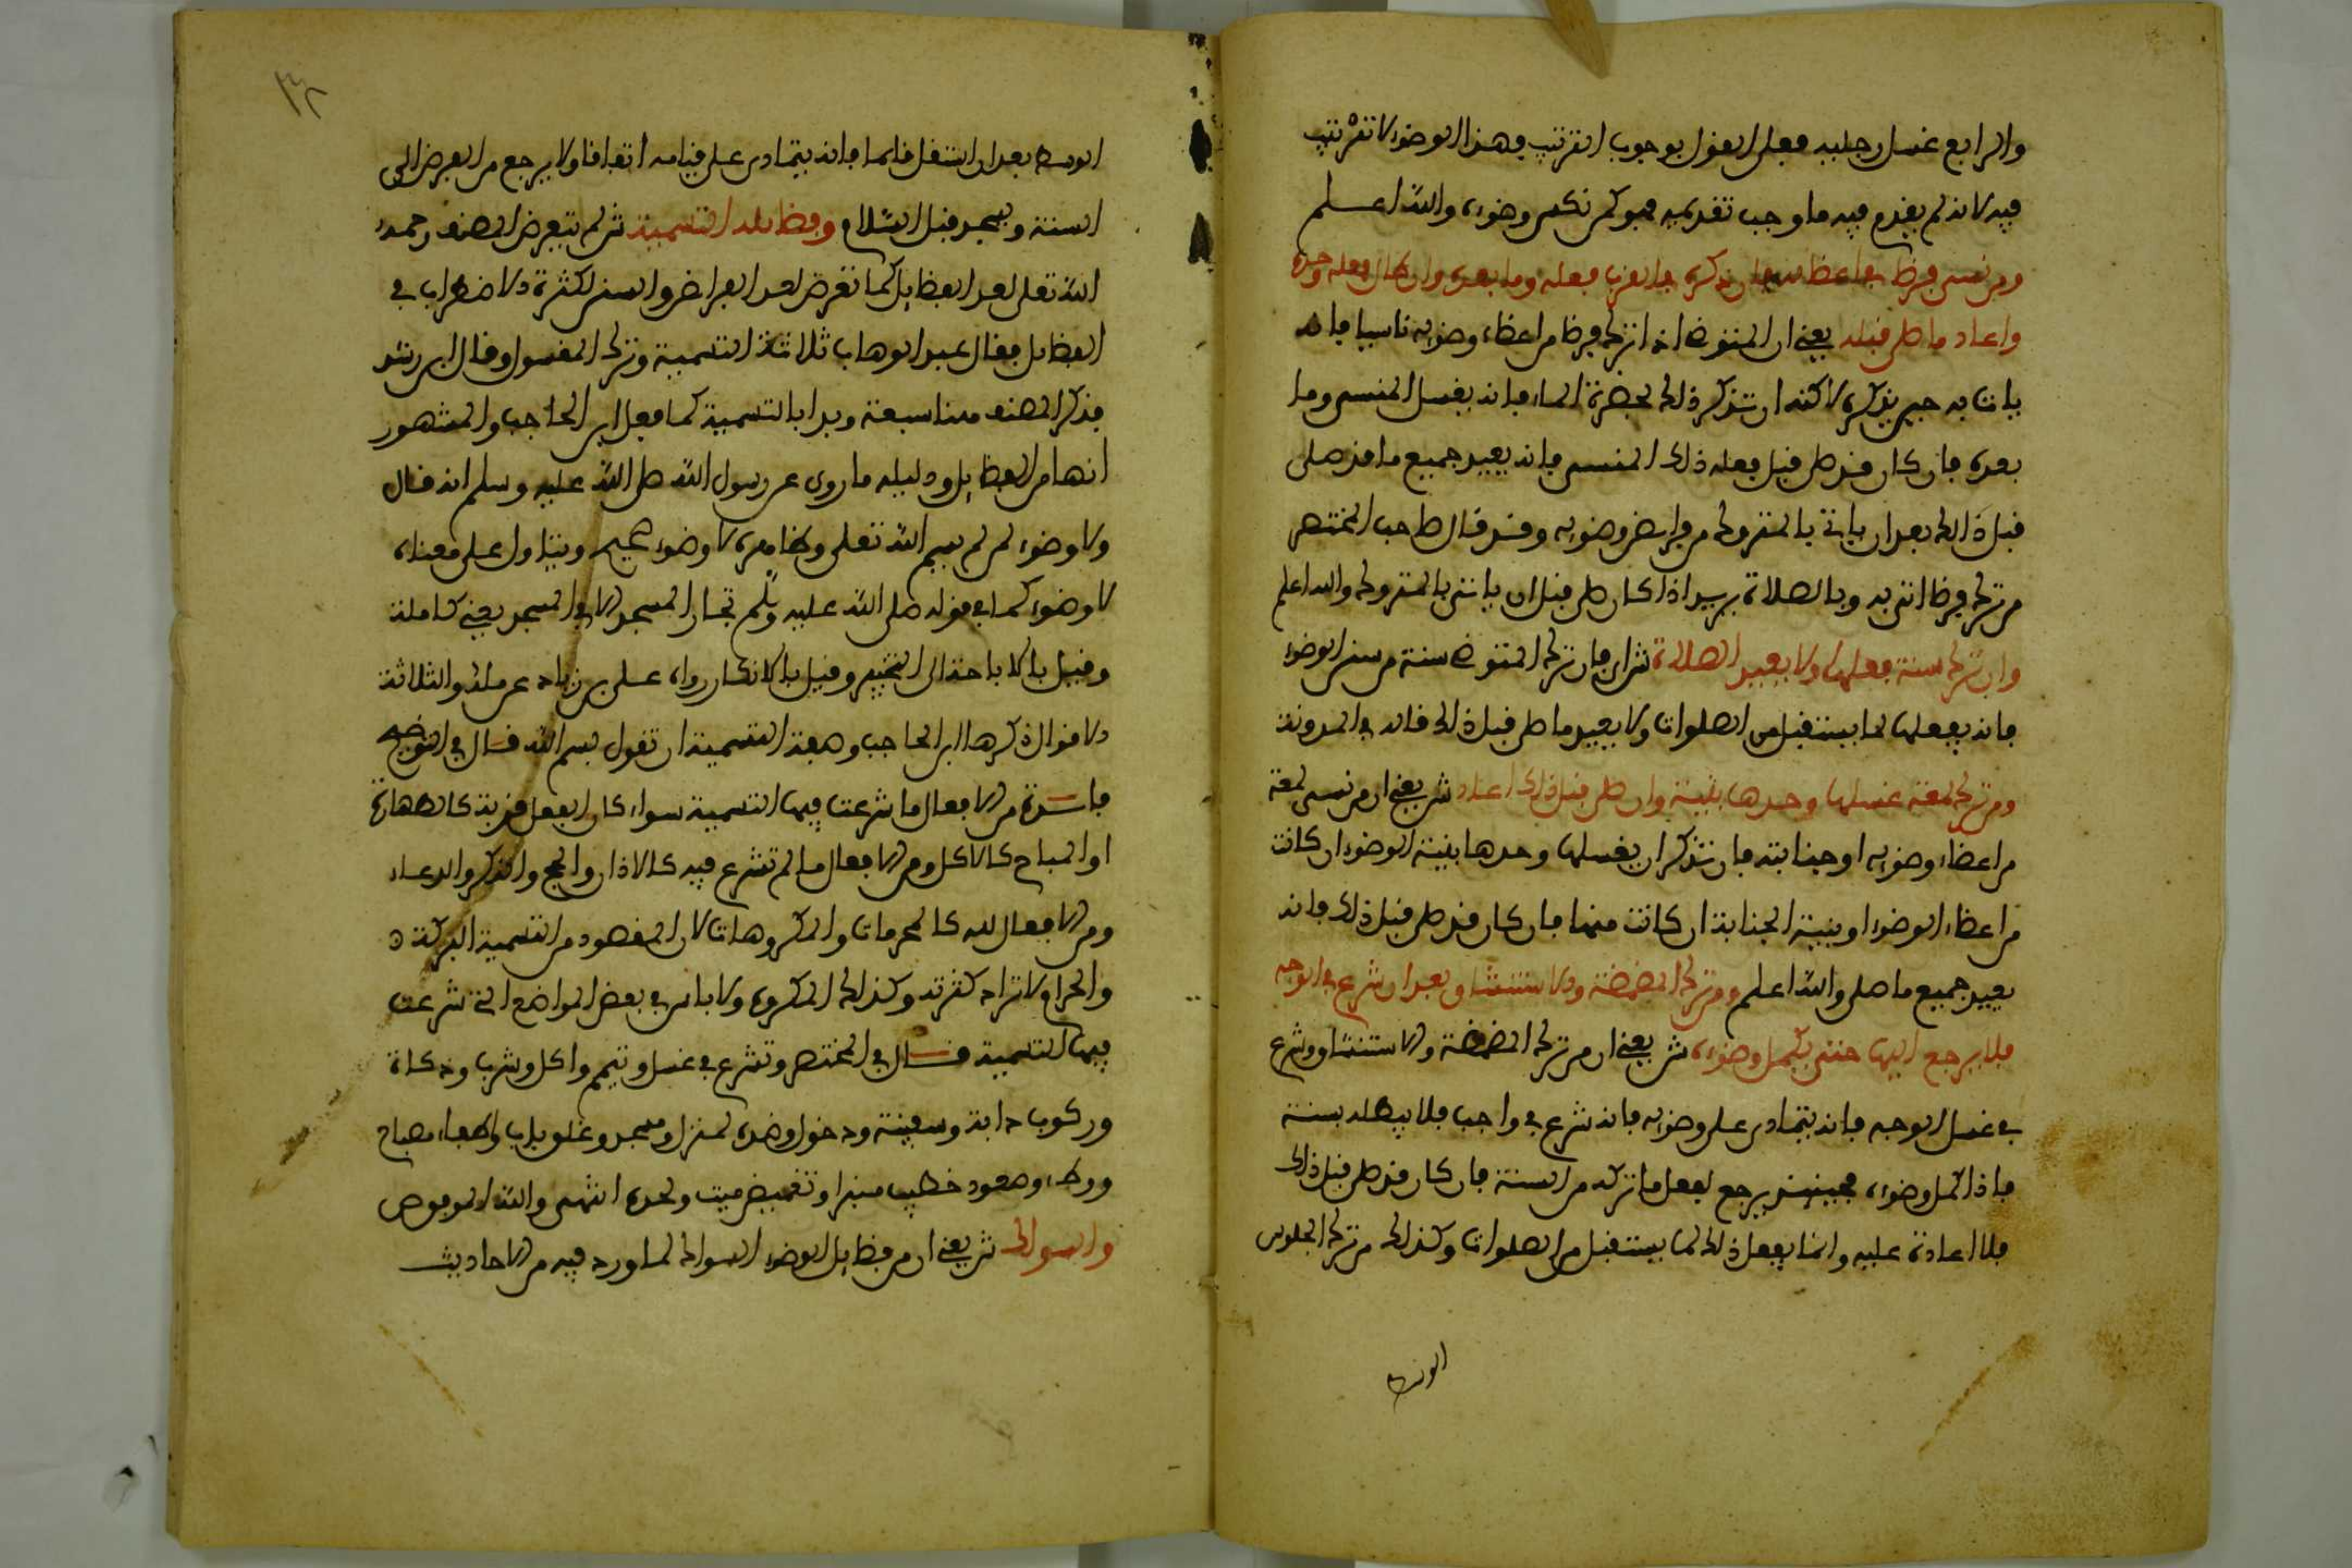 والرابع غسل رجليه فعلى القول بوجوب الترتيب فهذا الوضوء لا ترتيب
فيه لانه لم يقدم فيه ما وجب تقديمه فهو كمن نكس وضوءه والله اعلم
ومن نسي فرضا من اعضائه فان ذكره بالقرب فعله وما بعده وان طال فعله وحده
واعاد ما صلى قبله يعني ان المتوضئ اذا ترك فرضا من اعضاء وضوئه ناسيا فانه
ياتي به حين يذكره لاكنه ان تذكر ذلك بحضرة الماء فانه يغسل المنسي وما
بعده فان كان قد صلى قبل فعله ذلك المنسي فانه يعيد جميع ما قد صلى
قبل ذلك بعد ان ياتي بالمتروك من فرايض وضوئه وقد قال صاحب المختصر
من ترك فرضا اتى به وبالصلاة يريد اذا كان صلى قبل ان ياتي بالمتروك والله اعلم
وان ترك سنة فعلها ولا يعيد الصلاة ش اي فان ترك المتوضئ سنة من سنن الوضوء
فانه يفعلها لما يستقبل من الصلوات ولا يعيد ما صلى قبل ذلك قاله في المدونة
ومن ترك لمعة غسلها وحدها بنية وان صلى قبل ذلك اعاد ش يعني ان من نسي لمعة
من اعضاء وضوئه او جنابته فان تذكر ان يغسلها وحدها بنية الوضوء ان كانت
من اعضاء الوضوء او بنية الجنابة ان كانت منها فان كان قد صلى قبل ذلك فانه
يعيد جميع ما صلى والله اعلم ومن ترك المضمضة والاستنشاق بعد ان شرع في الوجه
فلا يرجع اليها حتى يكمل وضوءه ش يعني ان من ترك المضمضة والاستنشاق وشرع
في غسل الوجه فانه يتمادى على وضوئه فانه شرع في واجب فلا يبطله بسنة
فاذا اكمل وضوءه فحينئذ يرجع لفعل ما تركه من السنة فان كان قد صلى قبل ذلك
فلا اعادة عليه وانما يفعل ذلك لما يستقبل من الصلوات وكذلك من ترك الجلوس
الوسط
٣٢
الوسط بعد ان استقل قائما فانه يتمادى على قيامه اتفاقا ولا يرجع من الفرض الى
السنة ويسجد قبل السلام وفضائله التسمية ش لم يتعرض المصنف رحمه
الله تعلى لعد الفضايل كما تعرض لعد الفرائض والسنن لكثرة الاضطراب في
الفضائل فقال عبد الوهاب ثلاثة التسمية وترك المغسول وقال ابن رشد
فذكر المصنف منها سبعة وبدا بالتسمية كما فعل ابن الحاجب والمشهور
انها من الفضايل ودليله ما روي عن رسول الله صلى الله عليه وسلم انه قال
ولا وضوء لمن لم يسم الله تعلى وظاهره لا وضوء صحيح ويتاول على معناه
لا وضوء كما في قوله صلى الله عليه وسلم لجار المسجد الا في المسجد يعني كاملة
وقيل بالاباحة اي التخيير وقيل بالانكار رواه علي بن زياد عن ملك والثلاثة
الاقوال ذكرها ابن الحاجب وصفة التسمية ان تقول بسم الله قال في التوضيح
فايدة من الافعال ما شرعت فيها التسمية سواء كان الفعل قربة كالطهارة
او المباح كالاكل ومن الافعال ما لم تشرع فيه كالاذان والحج والذكر والدعاء
ومن الافعال لله كالمحرمات والمكروهات لان المقصود من التسمية البركة
والحرام لا تراد كثرته وكذلك المكروه ولا باس في بعض المواضع التي شرعت
فيها التسمية قال في المختصر وتشرع في غسل وتيمم واكل وشرب وذكاة
وركوب دابة وسفينة ودخول وضده لمنزل ومسجد وغلق باب واطفاء مصباح
ووطء وصعود خطيب منبرا وتغميض ميت ولحده انتهى والله الموفق
والسواك ش يعني ان من فضايل الوضوء السواك لما ورد فيه من الاحاديث